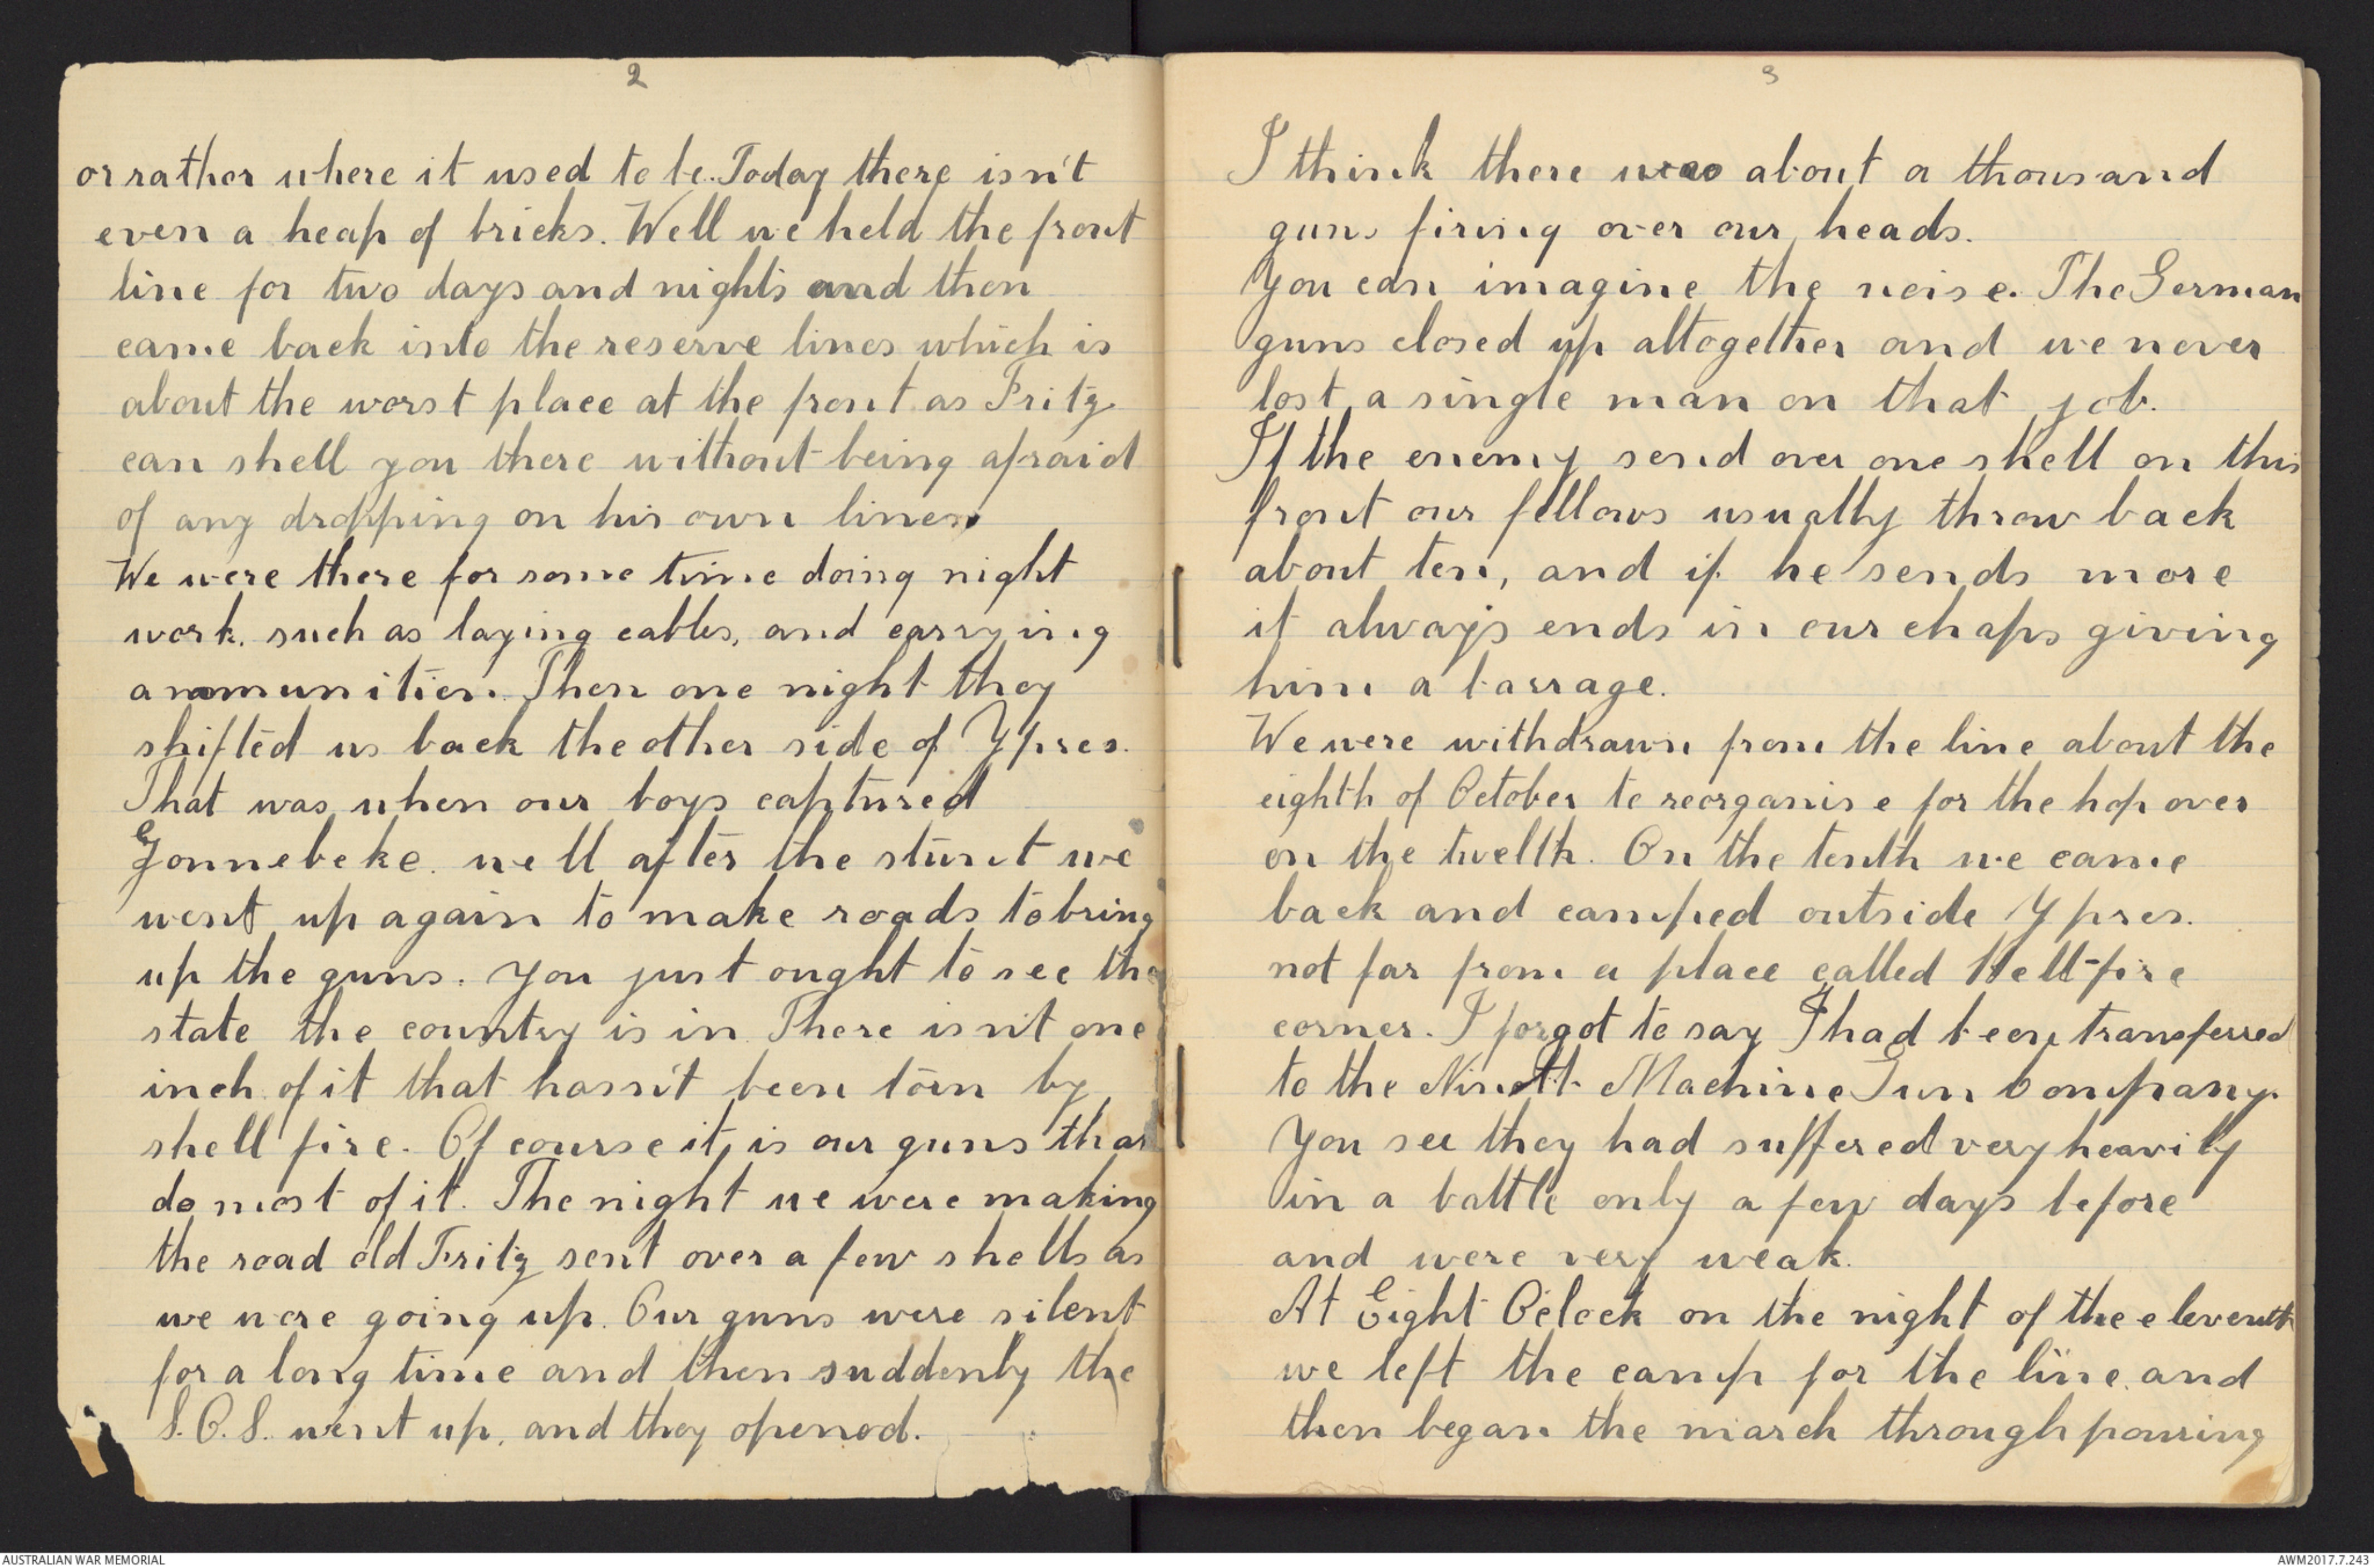 2
or rather where it used to be. Today there isn't
even a heap of bricks. Well we held the front
line for two days and nights and then
came back into the reserve lines which is
about the worst place at the front as Fritz
can shell you there without being afraid
of any dropping on his own lines
We were there for some time doing night
work, such as laying cables, and carrying
ammunition. Then one night they
shifted us back the other side of Ypres.
That was when our boys captured
Gonnebeke. well after the stunt we
went up again to make roads to bring
up the guns. You just ought to see the
state the country is in. There isn't one
inch of it that hasn't been torn by
shell fire. Of course it is our guns that
do most of it. The night we were making
the road old Fritz sent over a few shells as
we were going up. Our guns were silent
for a long time and then suddenly the
S.O.S. went up, and they opened.
3
I think there was about a thousand
guns firing over our heads.
You can imagine the noise. The German
guns closed up altogether and we never
lost a single man on that job.
If the enemy send over one shell on this
front our fellows usually throw back
about ten, and if he sends more
it always ends in our chaps giving
him a barrage.
We were withdrawn from the line about the
eighth of October to reorganise for the hop over
on the twelth. On the tenth we came
back and camped outside Ypres.
not far from a place called Hell-fire
corner. I forgot to say I had been transferred
to the Ninth Machine Gun Company.
You see they had suffered very heavily
in a battle only a few days before
and were very weak.
At Eight O'clock on the night of the eleventh
we left the camp for the line and
then began the march through pouring
AUSTRALIAN WAR MEMORIAL
AWM2017.7.243